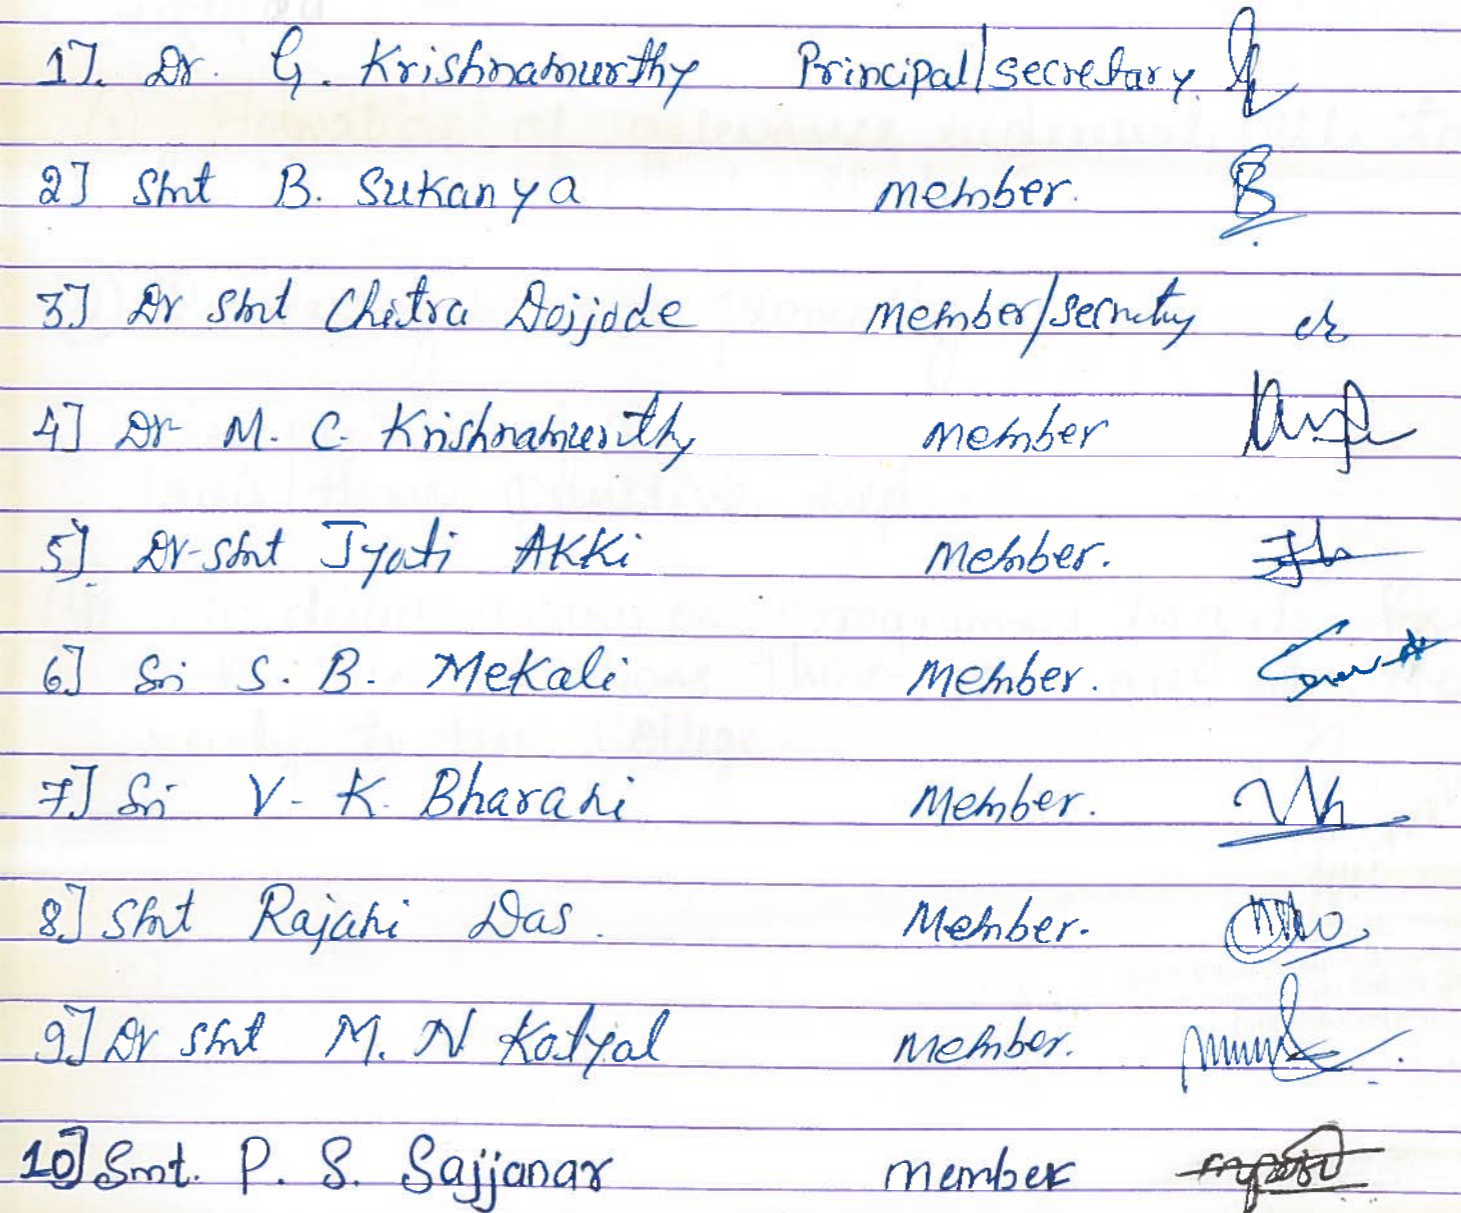 1]. Dr. G. Krishnamurthy Principal/secretary.
2] Smt B. Sukanya member.
3] Dr smt Chitra Doijode member/secretry
4] Dr M. C. Krishnamurthy member
5]. Dr-smt Jyoti AKKi member.
6] Sri S. B. Mekali member.
7] Sri V. K. Bharani Member.
8] Smt Rajani Das. Member.
9] Dr smt M. N Katyal member.
10] Smt. P. S. Sajjanar member